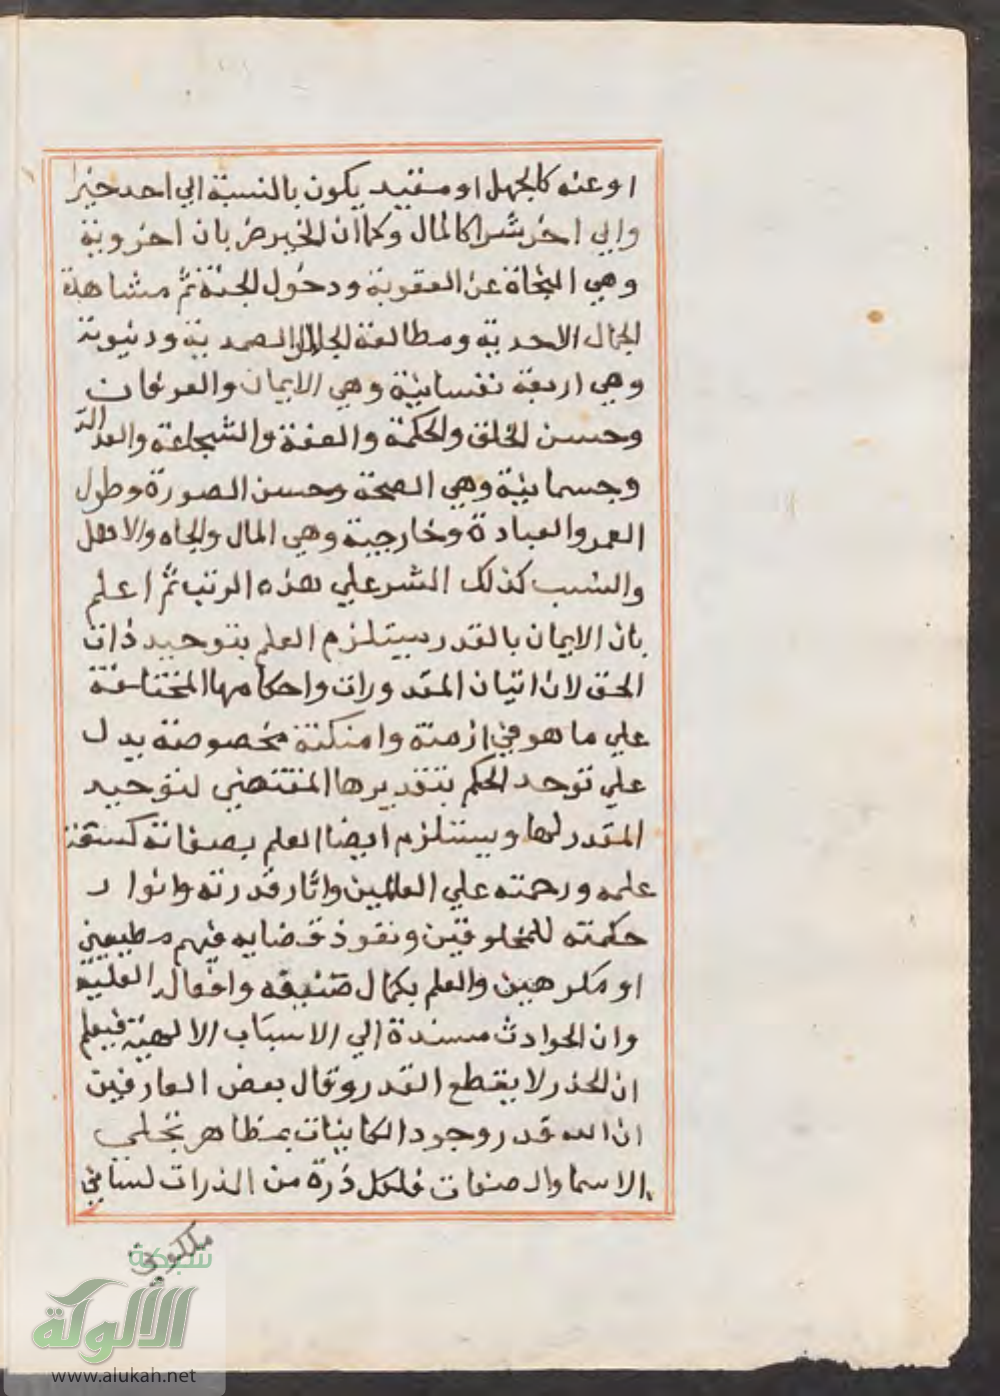 او عنه كالجهل او مقيد يكون بالنسبة الي احد خيرا
والي اخر شرا كالمال وكما ان الخير ضربان اخروية
وهي النجاة عن العقوبة ودخول الجنة ثم مشاهدة
الجمال الاحدية ومطالعة الجلال الصمدية ودنيوية
وهي اربعة نفسانية وهي الايمان والعرفان
وحسن الخلق والحكمة والعفة والشجاعة والعدالة
وجسمانية وهي الصحة وحسن الصورة وطول
العمر والعبادة وخارجية وهي المال والجاه والاهل
والنسب كذلك الشر علي هذه الرتب ثم اعلم
بان الايمان بالقدر يستلزم العلم بتوحيد ذات
الحق لان اتيان المقدورات واحكامها المختلفة
علي ما هو في ازمنة وامكنة مخصوصة يدل
علي توحد الحكم بتقديرها المقتضي لتوحيد
المقدر لها ويستلزم ايضا العلم بصفاته كسعة
علمه ورحمته علي العالمين واثار قدرته وانوار
حكمته للمخلوقين ونفوذ قضايه فيهم مطيعين
او مكرهين والعلم بكمال صنعه وافعال العلية
وان الحوادث مسندة الي الاسباب الالهية فيعلم
ان الحذر لا يقطع القدر وقال بعض العارفين
ان الله قدر وجود الكاينات بمظاهر تجلي
الاسما والصفات فلكل ذرة من الذرات لسان
ملكوتي
شبكة
الألوكة
www.alukah.net